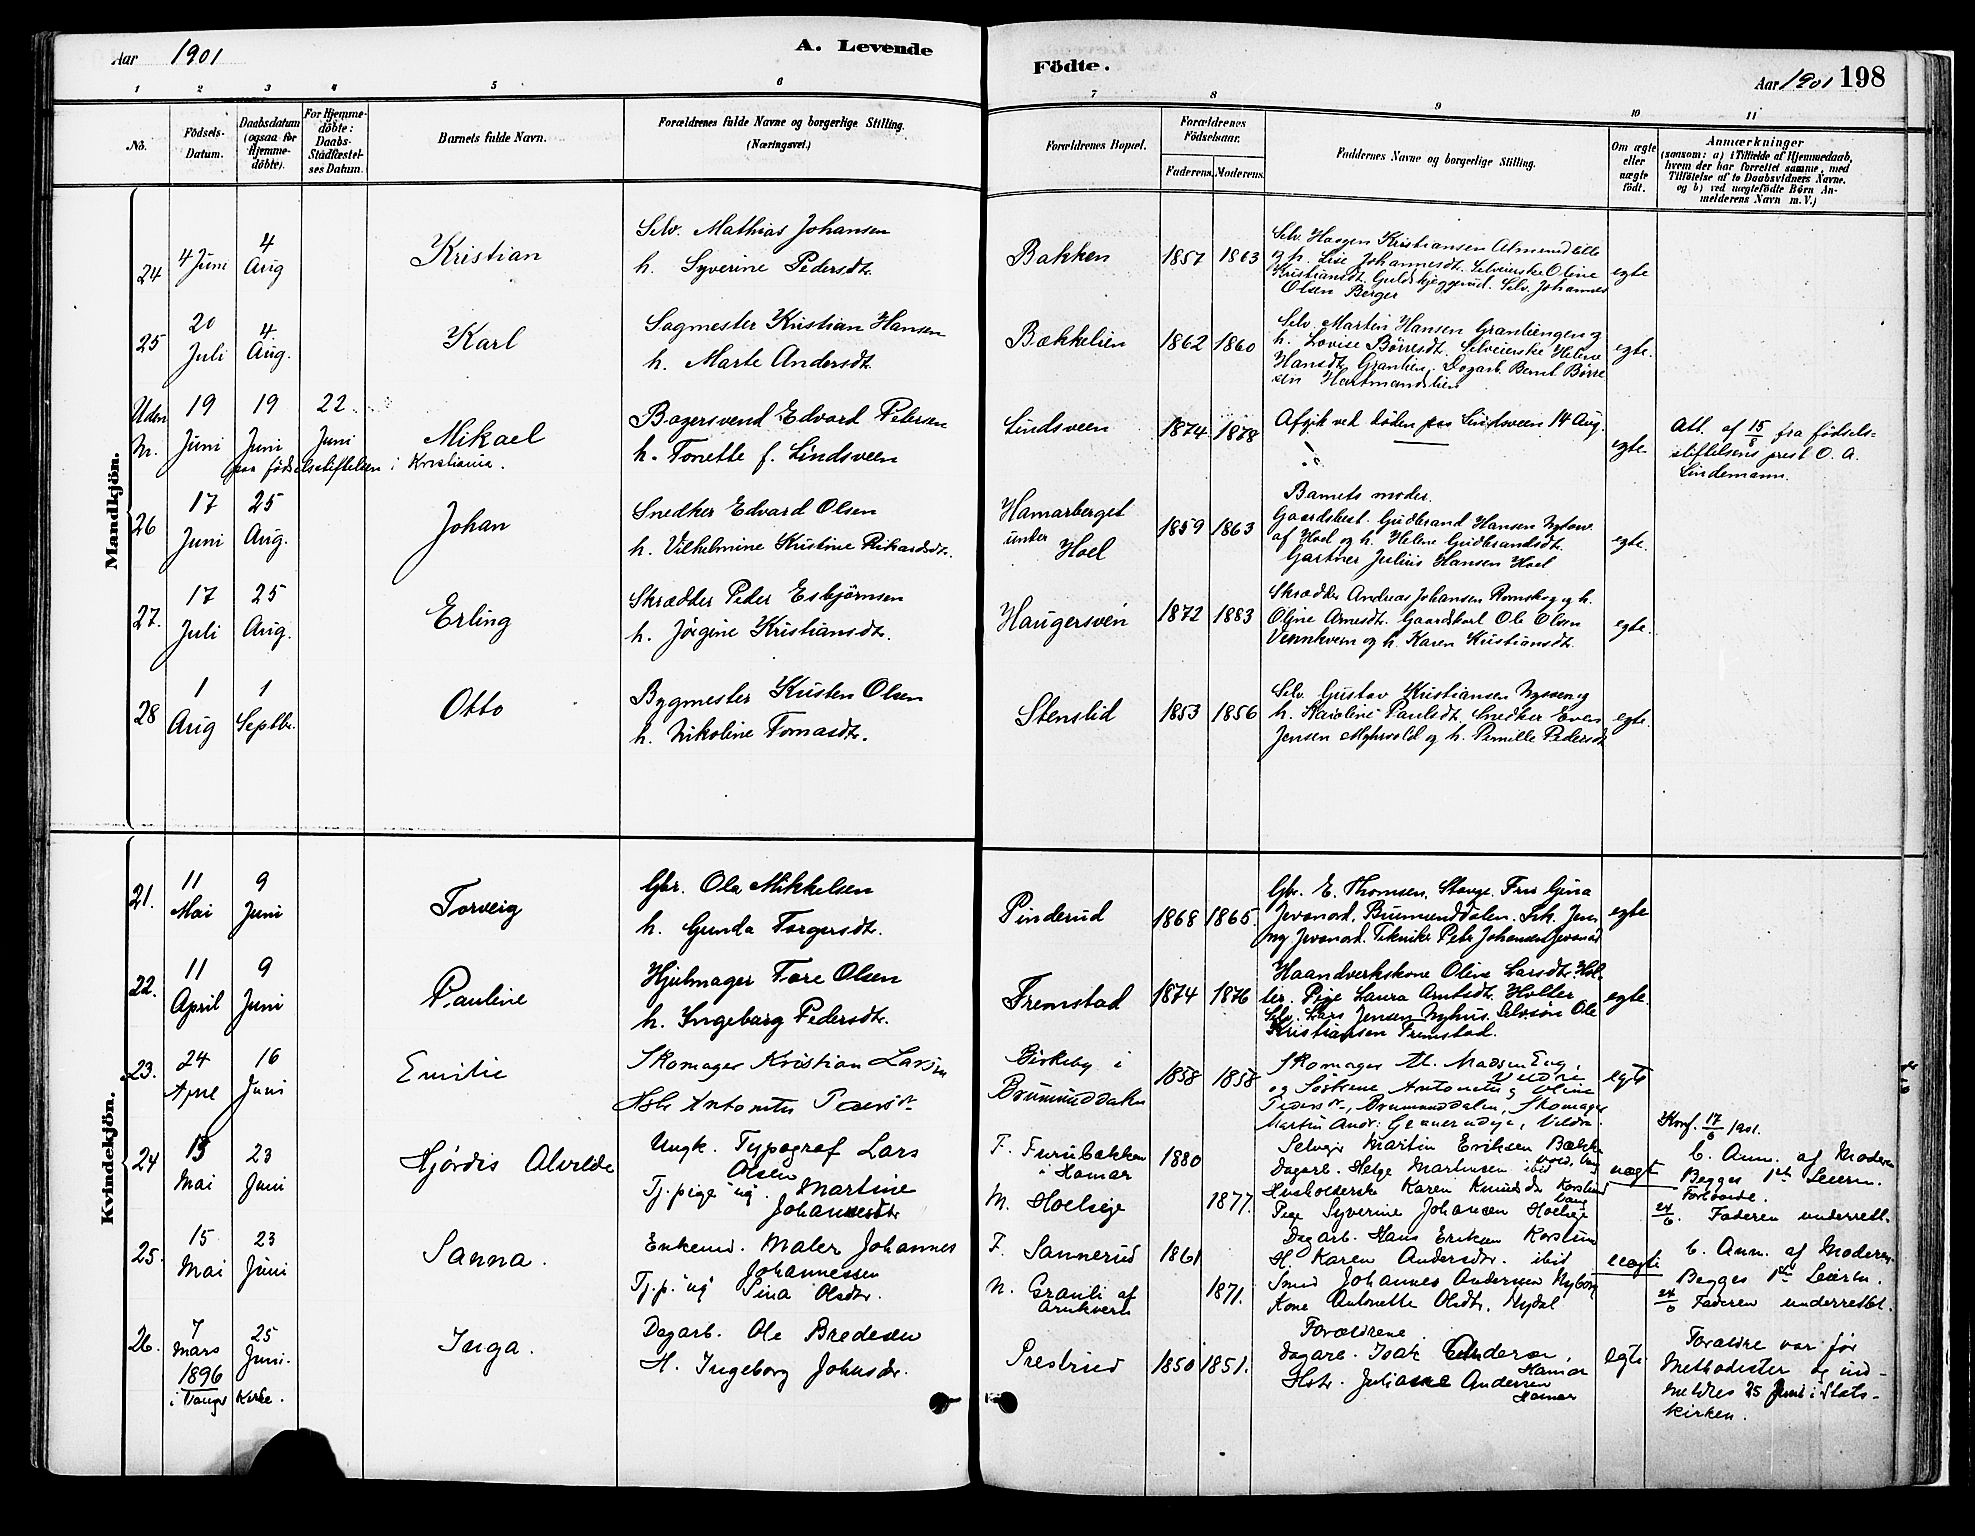 Aar 1901
A. Levende
Födte.
Aar 1901 198
1 2 3 4 5 6 7 8 9 10 11
No.
Födsels-Datum.
Daabsdatum (ogsaa for Hjemmedöbte).
For Hjemmedöbte: Daabs-Stadfæstelses Datum.
Barnets fulde Navn.
Forældrenes fulde Navne og borgerlige Stilling. (Næringsvei.)
Forældrenes Bopæl.
Forældrenes Födselsaar.
Faderens. Moderens.
Faddernes Navne og borgerlige Stilling.
Om ægte eller uægte födt.
Anmærkninger
(saasom: a) i Tilfælde af Hjemmedaab,
hvem der har forrettet samme, med
Tilföielse af to Daabsvidners Navne.
og b) ved uægtefödte Börn An-
melderens Navn m. V.)
Mandkjön.
24 4 Juni 4 Aug Kristian
Selv. Mathias Johansen
h. Syverine Pedersdt.
Bakken 1857 1863
Selv. Haagen Kristiansen
og h. Lise Johannesdt. Selveierske Oline
Kristiansdt. Guldskjeggerud. Selv. Johannes
Olsen Berger
egte
25 20 Juli 4. Aug. Karl
Sagmester Kristian Hansen
h. Marte Andersdt.
Bækkelien 1862 1860
Selv. Martin Hansen Granliengen og
h. Lovise Börresdt. Selveierske Helene
Hansdt. Granlien. Dagarb. Bernt Börre
sen Hartmandslien
egte.
Uden N. 19 Juni 19 Juni 22. Juni
paa födselsstiftelsen i Kristiania.
Mikael
Bagersvend Edvard Petersen
h. Tonette f. Lindsveen
Lindsveen 1874 1878
Afgik ved döden paa Lindsveen 14 Aug.
egte.
Att. af 15/8 fra födsels-
stiftelsens prest O. A.
Lindemann.
26 17 Juni 25 Aug. Johan
Snedker Edvard Olsen
h. Vilhelmine Kristine Rikardsdt.
Hamarberget under Hoel 1859 1863
Barnets moder.
Gaardsbest. Gudbrand Hansen
af Hoel og h. Helene Gudbrandsdt.
Gartner Julius Hansen Hoel
egte.
27. 17 Juli 25 Aug. Erling
Skrædder Peder Esbjörnsen
h. Jörgine Kristiansdt.
Haugersveen 1872 1883
Skrædder Andreas Johansen Romskog og h.
Oline Arnesdt. Gaardskarl Ole Olsen
og h. Karen Kristiansdt.
egte.
28 1 Aug 1 Septbr. Otto
Bygmester Kristen Olsen
h. Nikoline Tomasdt.
Stenslid 1853 1856
Selv. Gustav Kristiansen Nysven og
h. Karoline Paulsdt. Snedker Even
Jensen Myhrvold og h. Pernille Pedersdt
egte.
Kvindekjön.
21. 11 Mai 9 Juni Torveig
Gbr. Ola Mikkelsen
h. Gunda Torgersdt.
Pinderud 1868 1865.
Gbr. E. Thomsen, Stange. Fru Gina
Jevanord, Brumunddalen. Frk. Jen
ny Jevanord. Tekniker Peter Johansen Jevanord
egte
22. 11 April 9 Juni Pauline
Hjulmager Tore Olsen
h. Ingeborg Pedersdt.
Fremstad 1874 1876
Haandverkskone Oline Larsdt. Hol-
ter. Pige Laura Arntsdt. Holter
Selv. Lars Jensen Nyhus. Selvsön Ole
Kristiansen Fremstad.
egte.
23. 24 Aprl 16 Juni Emilie
Skomager Kristian Larsen
Hstr Antonette Pedersdr
Birkeby i Brumunddalen 1858 1858
Skomager M. Madsen Eng,
Veldre
og Söskene Antonette og Oline
Pedersdr, Brumunddalen, Skomager
Martin Andr: Veldre.
egte
24 13 Mai 23 Juni Hjördis Alvilde
Ungk. Typograf Lars
Olsen
Tj.pige ug. Martine
Johannesdtr
F. Furubakken i Hamar 1880
M. Hoelseje 1877.
Selvejr Martin Eriksen Bække
vold, Vang
Dagarb. Helge Martinsen ibid
Husholderske Karen Knudsdr Korslund
Vang
Pige Syverine Johansen Hoelseje
uægt
Konf. 17/6 1901.
b. Anm. af Moderen
Begges 1ste Leierm.
Forlovede.
24/6. Faderen underrett.
25. 15 Mai 23 Juni Sanna.
Enkemd. Maler Johannes
Johannessen
Tj.p. "ug" Pina Olsdtr.
F. Sannerud 1861
M. Granli af Arnkvern 1871.
Dagarb. Hans Eriksen Korslund
H. Karen Andersdtr. ibid
Smed Johannes Andersen Nyborg
Kone Antonette Olsdtr. Nydal
uægte
b. Anm. af Moderen.
Begges 1ste Leierm.
24/6 Faderen underrettet.
26. 7 Mars 1896 25 Juni.
i Vangs Kirke.
Inga.
Dagarb. Ole Bredesen
H. Ingeborg Johnsdr.
Prestrud 1850 1851.
Forældrene.
Dagarb. Isak Andersen,
Hamar
Hstr. Juliane Andersen
Hamar
egte
Forældre var för
Methodister og ind-
meldtes 25 Juni i Stats-
kirken.